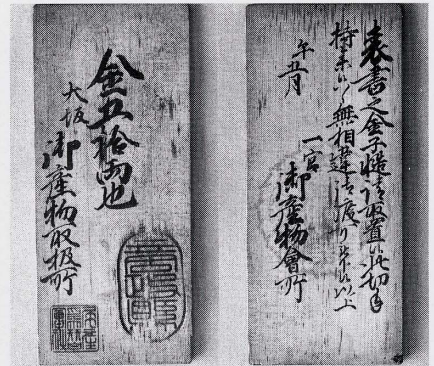 金五拾両也
大坂
御産物取扱所
表書之金子慥請取置候此切手
持参候ハヽ無相違渡可申候以上
午五月
一宮
御産物會所